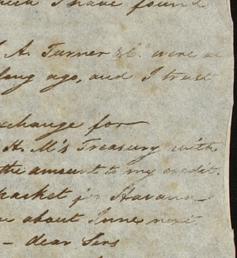 I have found
A. Turner &c. were at
long ago, and I trust
xchange for
H. M's Treasury with
the amount to my credit.
packet for Havana
about June next
- dear Sirs